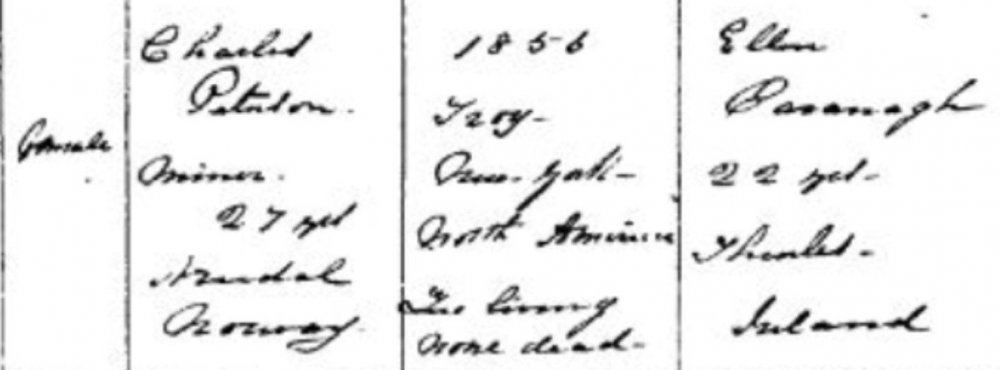 Female
Charles
Peterson.
Miner.
27 yrs
Arendal
Norway.
1856
Troy-
New-York-
North America
Two living
None dead-
Ellen
Cavanagh
22 yrs-
Thurles-
Ireland